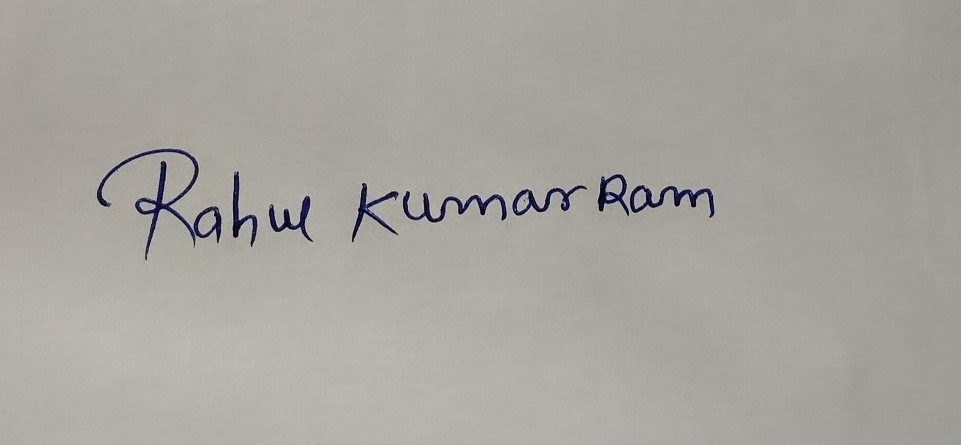 Rahul Kumar Ram